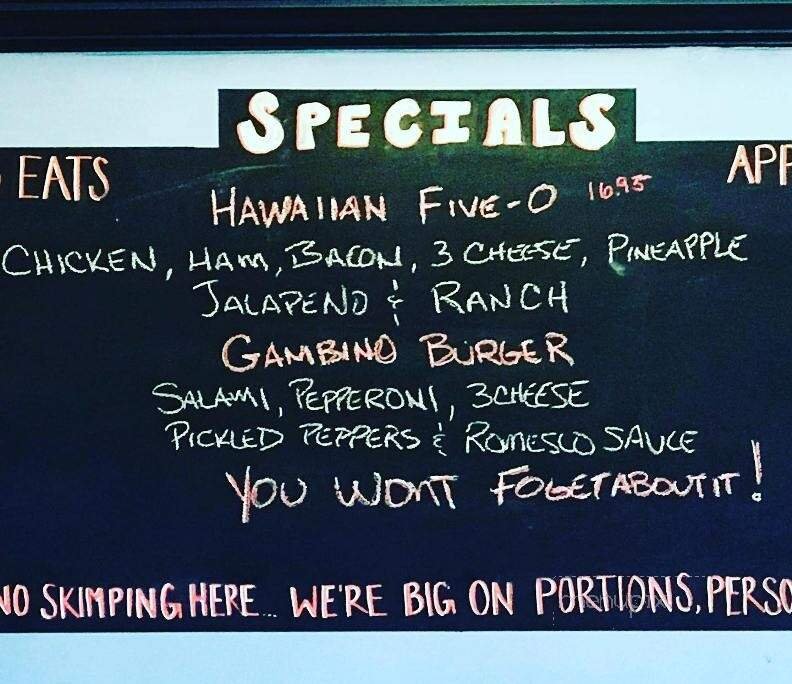 SPECIALS
EATS
APP
HAWAIIAN FIVE-O 16.95
CHICKEN, HAM, BACON, 3 CHEESE, PINEAPPLE
JALAPENO & RANCH
GAMBINO BURGER
SALAMI, PEPPERONI, 3 CHEESE
PICKLED PEPPERS & ROMESCO SAUCE
YOU WONT FOGETABOUTIT!
NO SKIMPING HERE... WE'RE BIG ON PORTIONS, PERSO
menupix